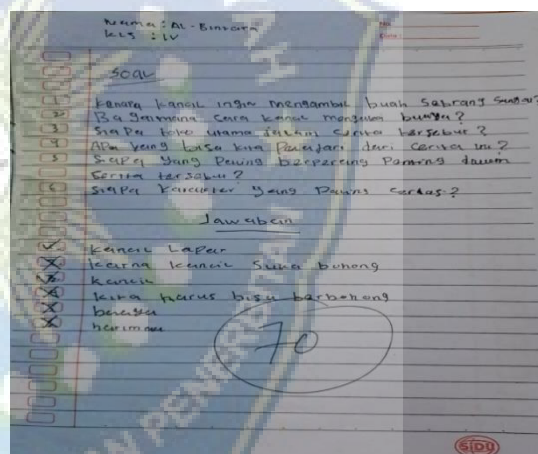 Nama : AL - Bintara
kls : IV
No :
Date :
SOAL
kenapa kancil ingin mengambil buah sebrang sungai?
2 Bagaimana cara kancil menipu buaya?
3 Siapa toko utama dalam cerita tersebut?
4 APa yang bisa kita Pelajari dari cerita ini?
5 Siapa yang Paling berperang Penting dalam
cerita tersebut?
6 Siapa karakter yang Paling cerdas?
Jawaban
kancil Lapar
karna kancil suka bohong
kancil
kita harus bisa berbohong
buaya
harimau
70
AN PENERBITAN
SIDU